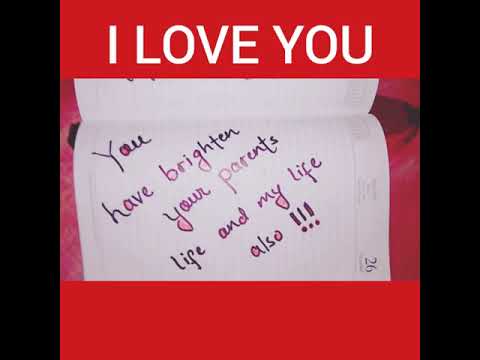 I LOVE YOU
You
have brighten
your parents
life and my life
also !!!
26